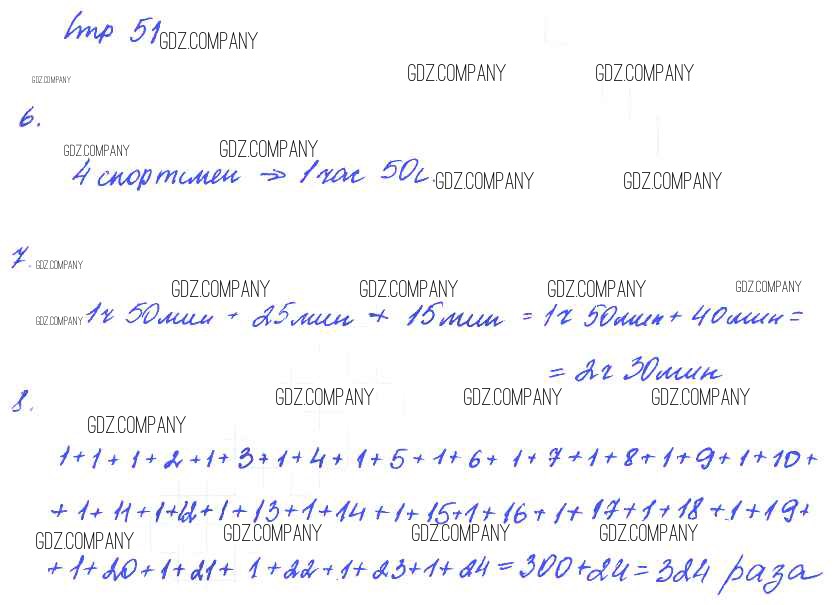 Стр 51 GDZ.COMPANY
GDZ.COMPANY GDZ.COMPANY GDZ.COMPANY
6.
GDZ.COMPANY GDZ.COMPANY
4 спортсмен → 1 час 50с. GDZ.COMPANY GDZ.COMPANY
7. GDZ.COMPANY
GDZ.COMPANY GDZ.COMPANY GDZ.COMPANY GDZ.COMPANY
GDZ.COMPANY 1ч 50мин + 25мин + 15мин = 1ч 50мин + 40мин =
= 2ч 30мин
8. GDZ.COMPANY GDZ.COMPANY GDZ.COMPANY
GDZ.COMPANY
1+1+1+2+1+3+1+4+1+5+1+6+1+7+1+8+1+9+1+10+
+1+11+1+12+1+13+1+14+1+15+1+16+1+17+1+18+1+19+
GDZ.COMPANY GDZ.COMPANY GDZ.COMPANY GDZ.COMPANY
+1+20+1+21+1+22+1+23+1+24=300+24=324 раза